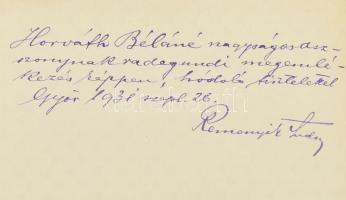 Horváth Béláné nagyságos asz-
szonynak radegundi megemlé-
kezés képpen, hódoló tisztelettel
Győr, 1931 szept. 26.
Remenyik